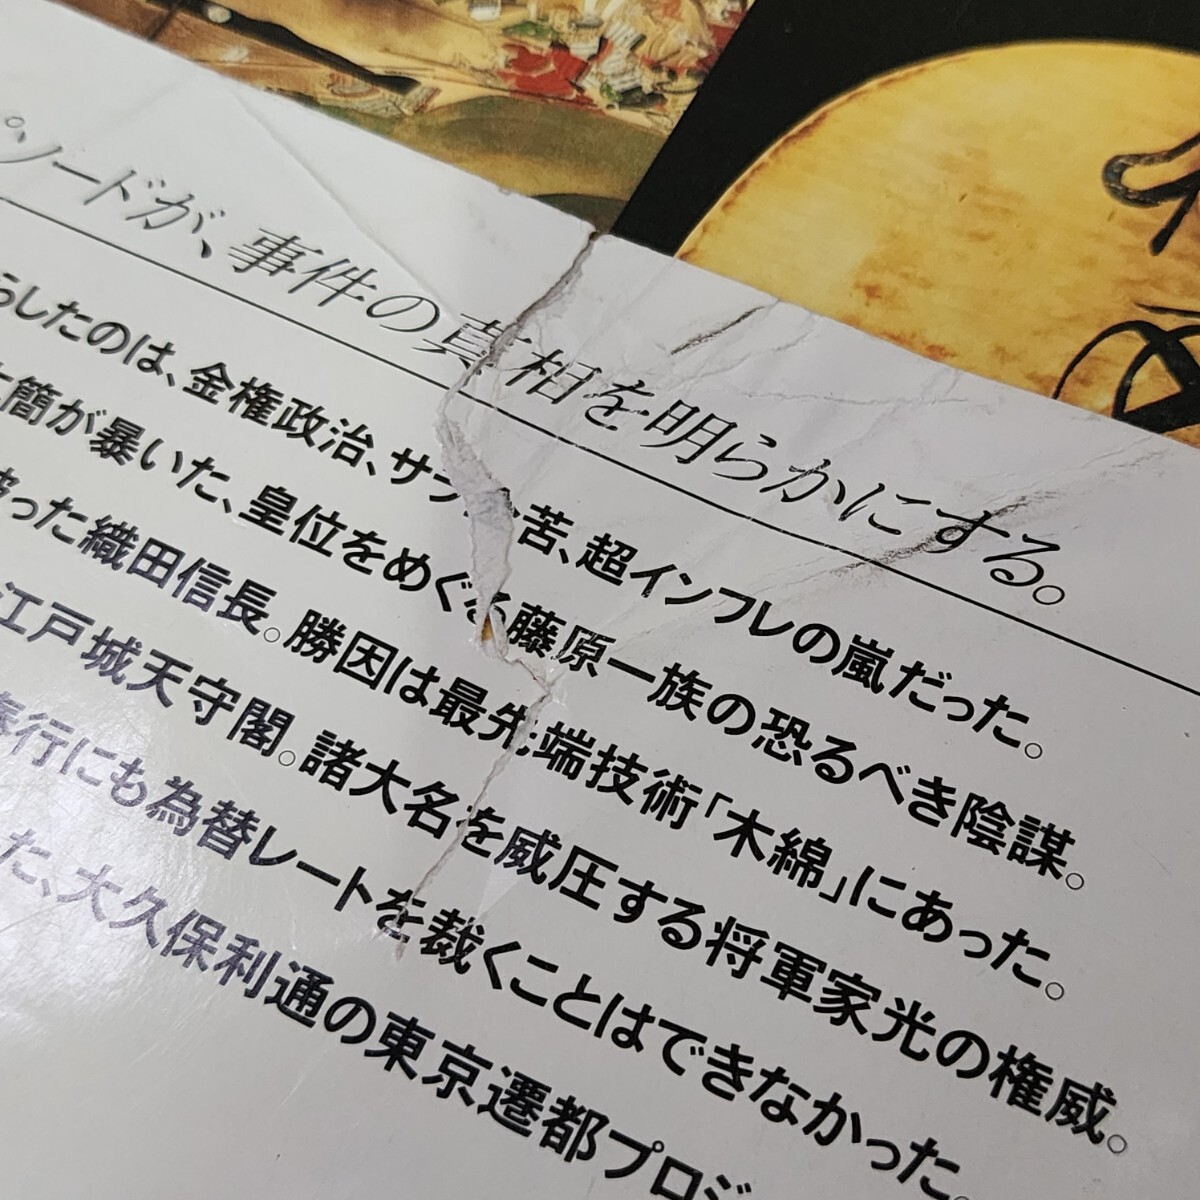 ソードが、事件の真相を明らかにする。
らしたのは、金権政治、サラ金苦、超インフレの嵐だった。
簡が暴いた、皇位をめぐる藤原一族の恐るべき陰謀。
破った織田信長。勝因は最先端技術「木綿」にあった。
江戸城天守閣。諸大名を威圧する将軍家光の権威。
奉行にも為替レートを裁くことはできなかった。
た、大久保利通の東京遷都プロジ